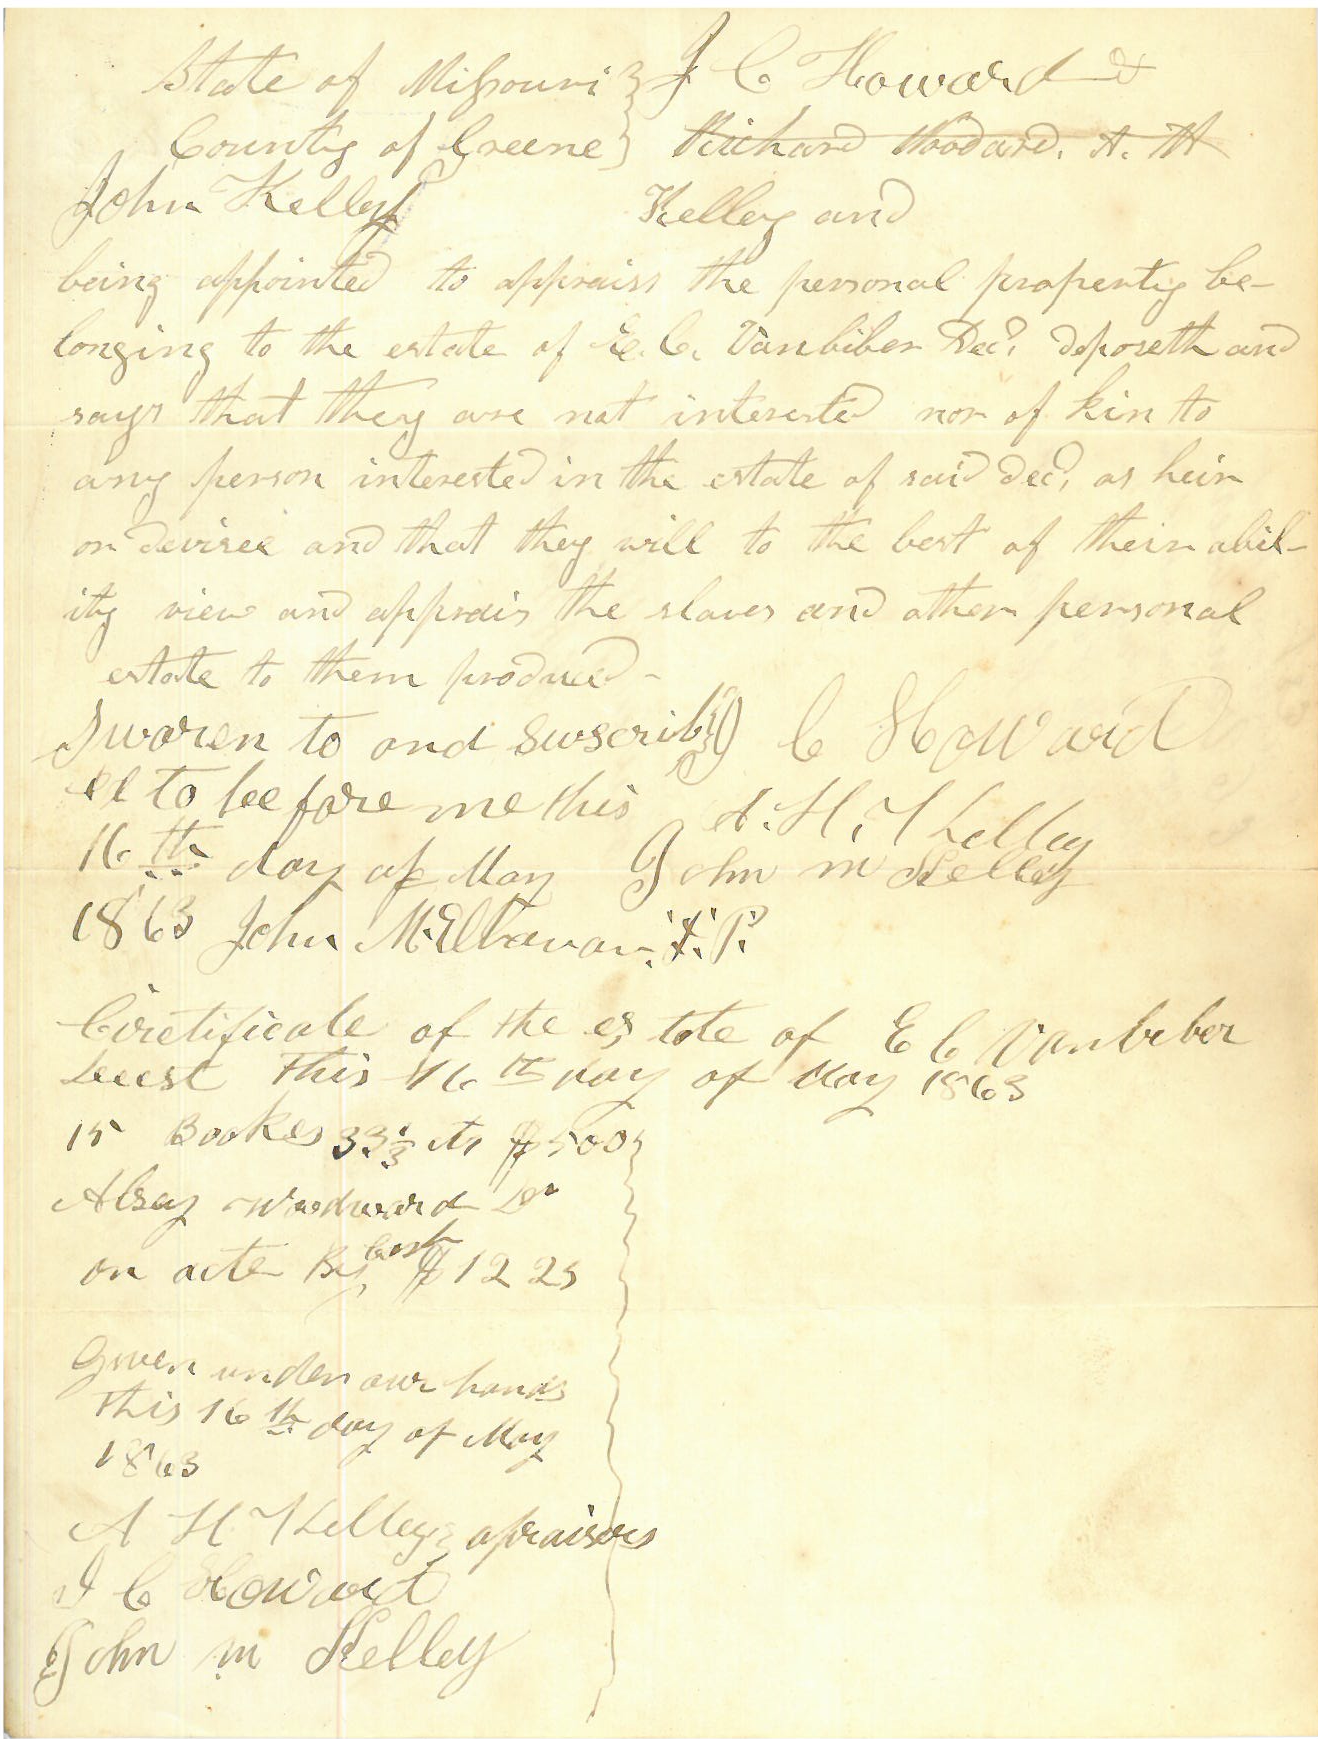 State of Missouri } J C Howard &
County of Greene } Richard Woodard. A. H
John Kelley Kelley and
being appointed to appraiss the personal property be-
longing to the estate of E. C. Vanbiber Decd, deposeth and
says that they are not interested nor of kin to
any person interested in the estate of said Decd, as heir
or devisee and that they will to the best of their abil-
ity view and apprais the slaves and other personal
estate to them produced-
Sworen to and Suscrib J C Howard
ed to beefore me this A. H. Kelley
16th day of May John M Kelley
1863 John McElhanan. J. P.
Ciretificate of the es tate of E C Vanbiber
Decest This 16th day of May 1863
15 Bookes 33 1/3 cts $5 00
Absay Woodward Dr
on acte By Cash $12 25
Given under our hands
This 16th day of May
1863
A H Kelley apraisors
J C Howard
John M Kelley